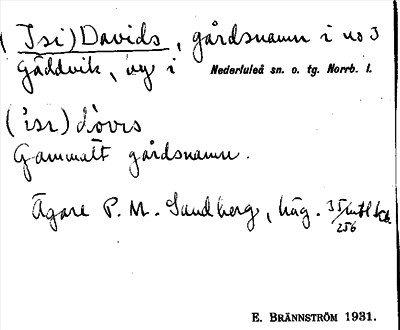 (Isi)Davids, gårdsnamn i no 3
Gäddvik, by i Nederluleå sn. o. tg. Norrb. l.
('isi) dovis
Gammalt gårdsnamn.
Ägare P. M. Sandberg, häg. 35/
256
E. BRÄNNSTRÖM 1931.